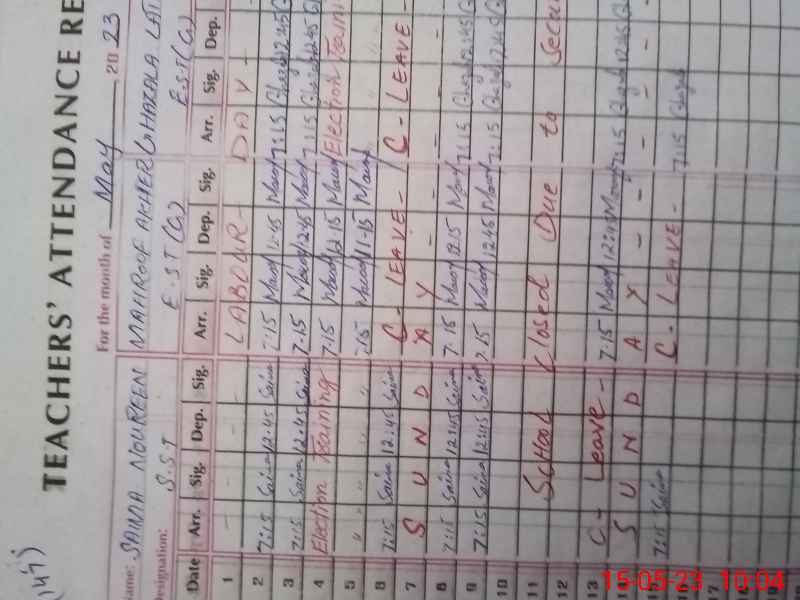 (147)
TEACHERS' ATTENDANCE RE
For the month of May, 2023
Name: SAIMA NOUREEN MAHROOF AKHTER GHAZALA LAT
Designation: S.S.T E.S.T (G) E.S.T (G)
Date Arr. Sig. Dep. Sig. Arr. Sig. Dep. Sig. Arr. Sig. Dep.
1 - - - - LABOUR - DAY -
2 7:15 Saima 12:45 Saima 7:15 Maroof 12:45 Maroof 7:15 Ghazal 12:45
3 7:15 Saima 12:45 Saima 7:15 Maroof 12:45 Maroof 7:15 Ghazal 12:45
4 Election Training 7:15 Maroof 12:15 Maroof Election Training
5 " " " " 7:15 Maroof 11:15 Maroof
6 7:15 Saima 12:45 Saima C - LEAVE - C - LEAVE -
7 S U N D A Y - - - - -
8 7:15 Saima 12:45 Saima 7:15 Maroof 12:15 Maroof 7:15 Ghazal 12:45
9 7:15 Saima 12:45 Saima 7:15 Maroof 12:45 Maroof 7:15 Ghazal 12:45
10
11 School Closed Due to Secu
12
13 C - Leave - 7:15 Maroof 12:45 Maroof 7:15 Ghazal 12:45
14 S U N D A Y - - - - -
15 7:15 Saima C - LEAVE - 7:15 Ghazal
16
17
18
19
15-05-23 10:04